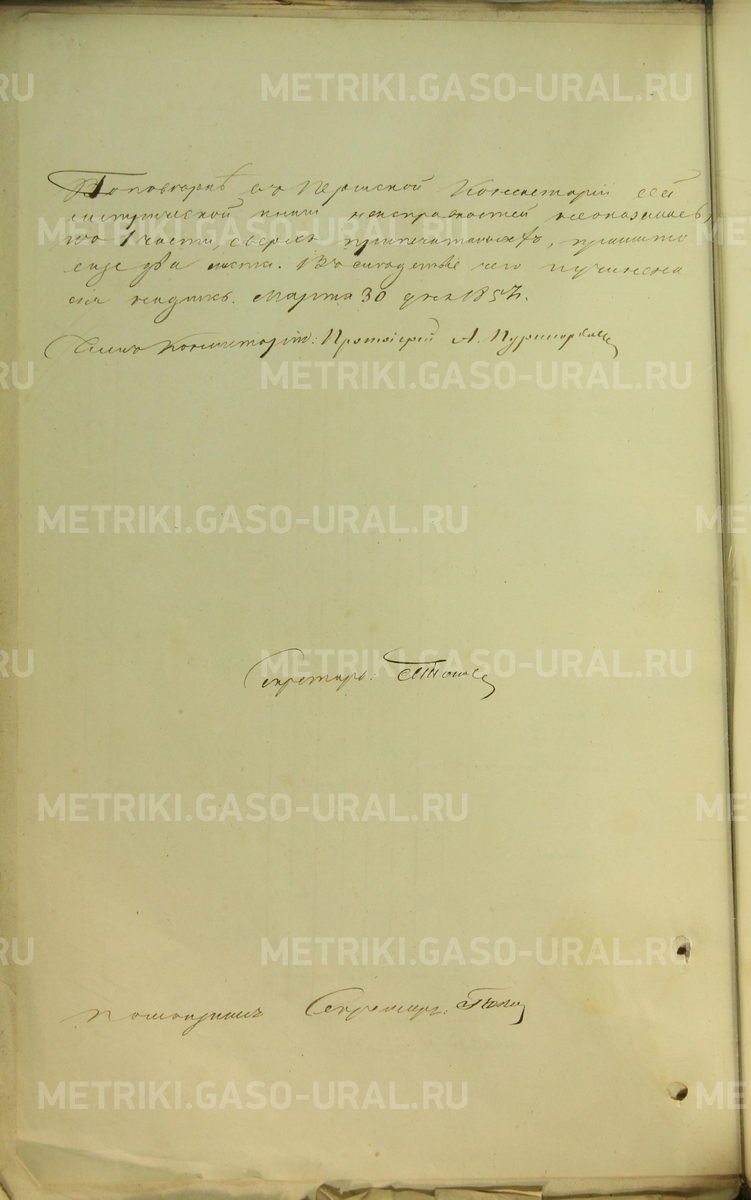 METRIKI.GASO-URAL.RU
По повѣркѣ въ Пермской Консисторіи сей
метрической книги неисправностей неоказалось,
по 1 части, сверхъ припечатанныхъ, пришито
еще два листа. Въ свидетельство чего и учинена
сія надпись. Марта 30 дня 185
METRIKI.GASO-URAL.RU
Членъ Консисторіи: Протоіерей А.
METRIKI.GASO-URAL.RU
METRIKI.GASO-URAL.RU
METRIKI.GASO-URAL.RU
Секретарь:
METRIKI.GASO-URAL.RU
METRIKI.GASO-URAL.RU
Помощникъ Секретаря:
METRIKI.GASO-URAL.RU